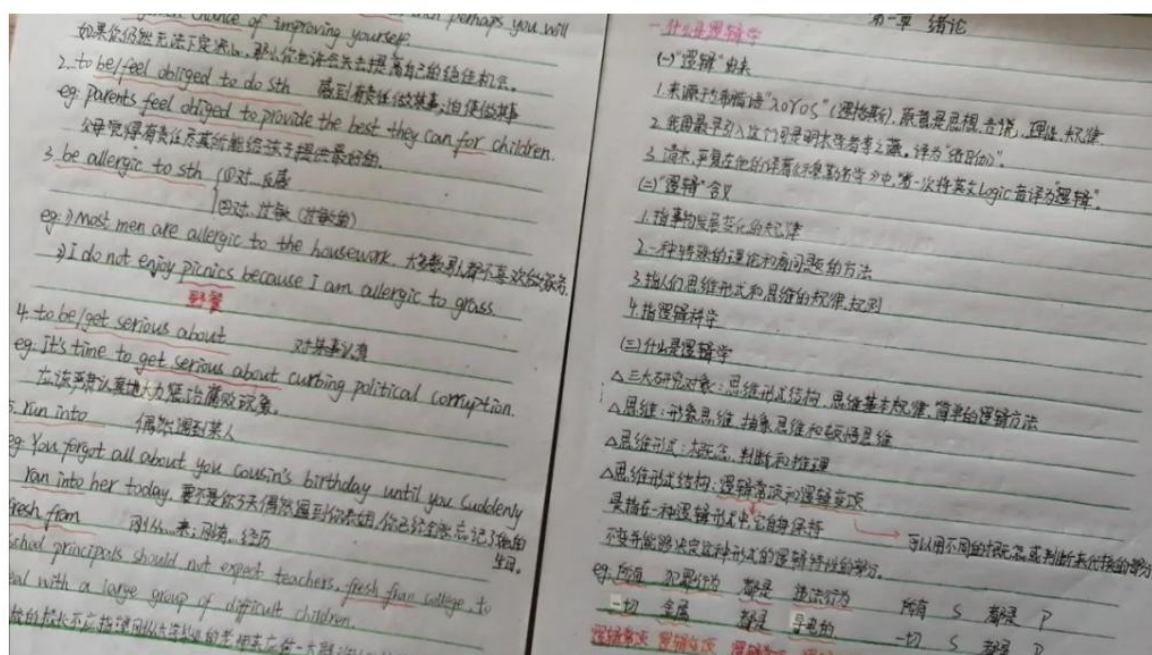 chance of improving yourself.
perhaps you will
如果你仍然无法下定决心,那么你也许会失去提高自己的绝佳机会。
2. to be/feel obliged to do sth 感到有责任做某事;迫使做某事
eg: parents feel obliged to provide the best they can for children.
父母觉得有责任尽其所能给孩子提供最好的。
3. be allergic to sth ①对..反感
②对..过敏(过敏的)
eg: 1) Most men are allergic to the housework. 大多数男人都不喜欢做家务.
2) I do not enjoy picnics because I am allergic to grass.
野餐
4. to be/get serious about 对某事认真
eg: It's time to get serious about curbing political corruption.
应该严肃认真地大力惩治腐败现象。
5. run into 偶然遇到某人
eg: You forgot all about you cousin's birthday until you suddenly
ran into her today. 要不是你今天偶然遇到你表姐,你已经全然忘记了她的
生日。
fresh from 刚从..来;刚有..经历
school principals should not expect teachers, fresh from college, to
deal with a large group of difficult children.
第一章 绪论
一.什么是逻辑学
(一)"逻辑"由来
1.来源于希腊语"λoγos"(逻格斯),原意是思想,言说,理性,规律.
2.我国最早引入这门词是明末学者李之藻,译为"
3.清末,严复在他的译著《穆勒名学》中,第一次将英文Logic音译为"逻辑".
(二)"逻辑"含义
1.指事物发展变化的规律
2.一种特殊的理论和看问题的方法
3.指人们思维形式和思维的规律,规则
4.指逻辑科学
(三)什么是逻辑学
△三大研究对象:思维形式结构,思维基本规律,简单的逻辑方法
△思维:形象思维,抽象思维和顿悟思维
△思维形式:概念,判断和推理
△思维形式结构:逻辑常项和逻辑变项
是指在一种逻辑形式中,它自身保持 → 可以用不同的概念或判断来代换的部分
不变并能够决定这种形式的逻辑特性的部分.
eg: 所有 犯罪行为 都是 违法行为 所有 S 都是 P
一切 金属 都是 导电的 一切 S 都是 P
逻辑常项 逻辑变项 逻辑常项